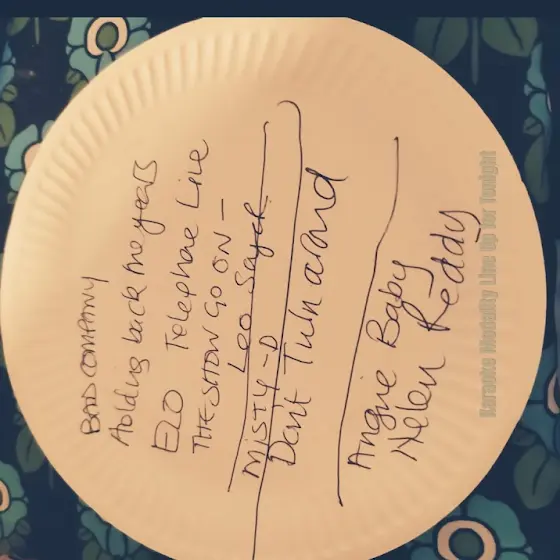 BAD COMPANY
Holding back the years
ELO Telephone Line
THE SHOW GO ON -
Leo Sayer
MISTY-D
Don't Turn around
Angie Baby
Helen Reddy
Karaoke Modality Line Up for Tonight